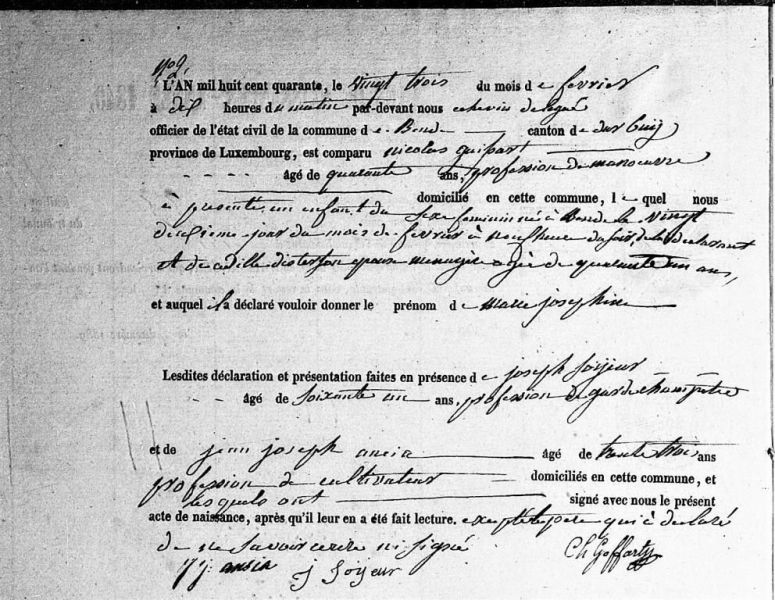 N° 2.
L'AN mil huit cent quarante, le vingt trois du mois de fevrier
à dix heures du matin par-devant nous echevin delegué
officier de l'état civil de la commune de Bende canton de durbuy
province de Luxembourg, est comparu nicolas quipart
âgé de quarante ans, profession de manoeuvre
domicilié en cette commune, lequel nous
a presenté un enfant du sexe feminin né à Bende le vingt
deuxieme jour du mois de fevrier à neuf heure du soir, de lui declarant
et de son epouse menagère agée de quarante un ans,
et auquel il a déclaré vouloir donner le prénom de marie josephine
Lesdites déclaration et présentation faites en présence de joseph soijeur
âgé de soixante un ans, profession de garde champetre
et de jean joseph ancia âgé de trente trois ans
profession de cultivateur domiciliés en cette commune, et
lesquels ont signé avec nous le présent
acte de naissance, après qu'il leur en a été fait lecture. excepté le pere qui à declaré
de ne savoir ecrire ni signé
j j ancia j Soijeur Ch Goffart